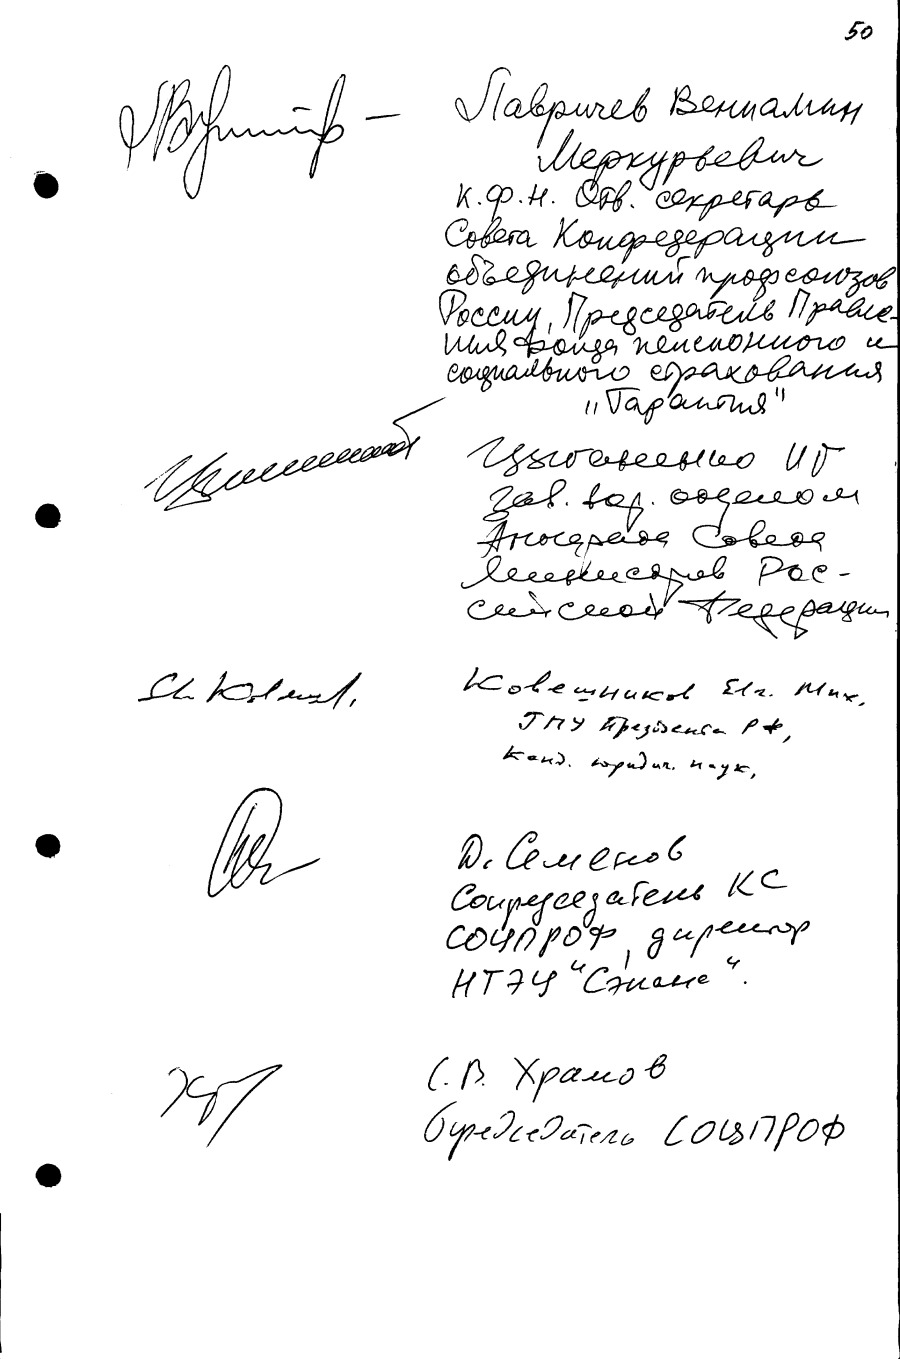 50
Лавричев Вениамин
Меркурьевич
к.ф.н. Отв. секретарь
Совета Конфедерации
объединений профсоюзов
России, Председатель Правле-
ния Фонда пенсионного и
социального страхования
"Гарантия"
Цыганенко И Г
Зав. отделом
Аппарата Совета
Министров Рос-
сийской Федерации
Ковешников Евг. Мих.
ГПУ Президента РФ,
канд. юридич. наук,
Д. Семенов
Сопредседатель КС
СОЦПРОФ, директор
НТЭЦ
С.В. Храмов
СОЦПРОФ